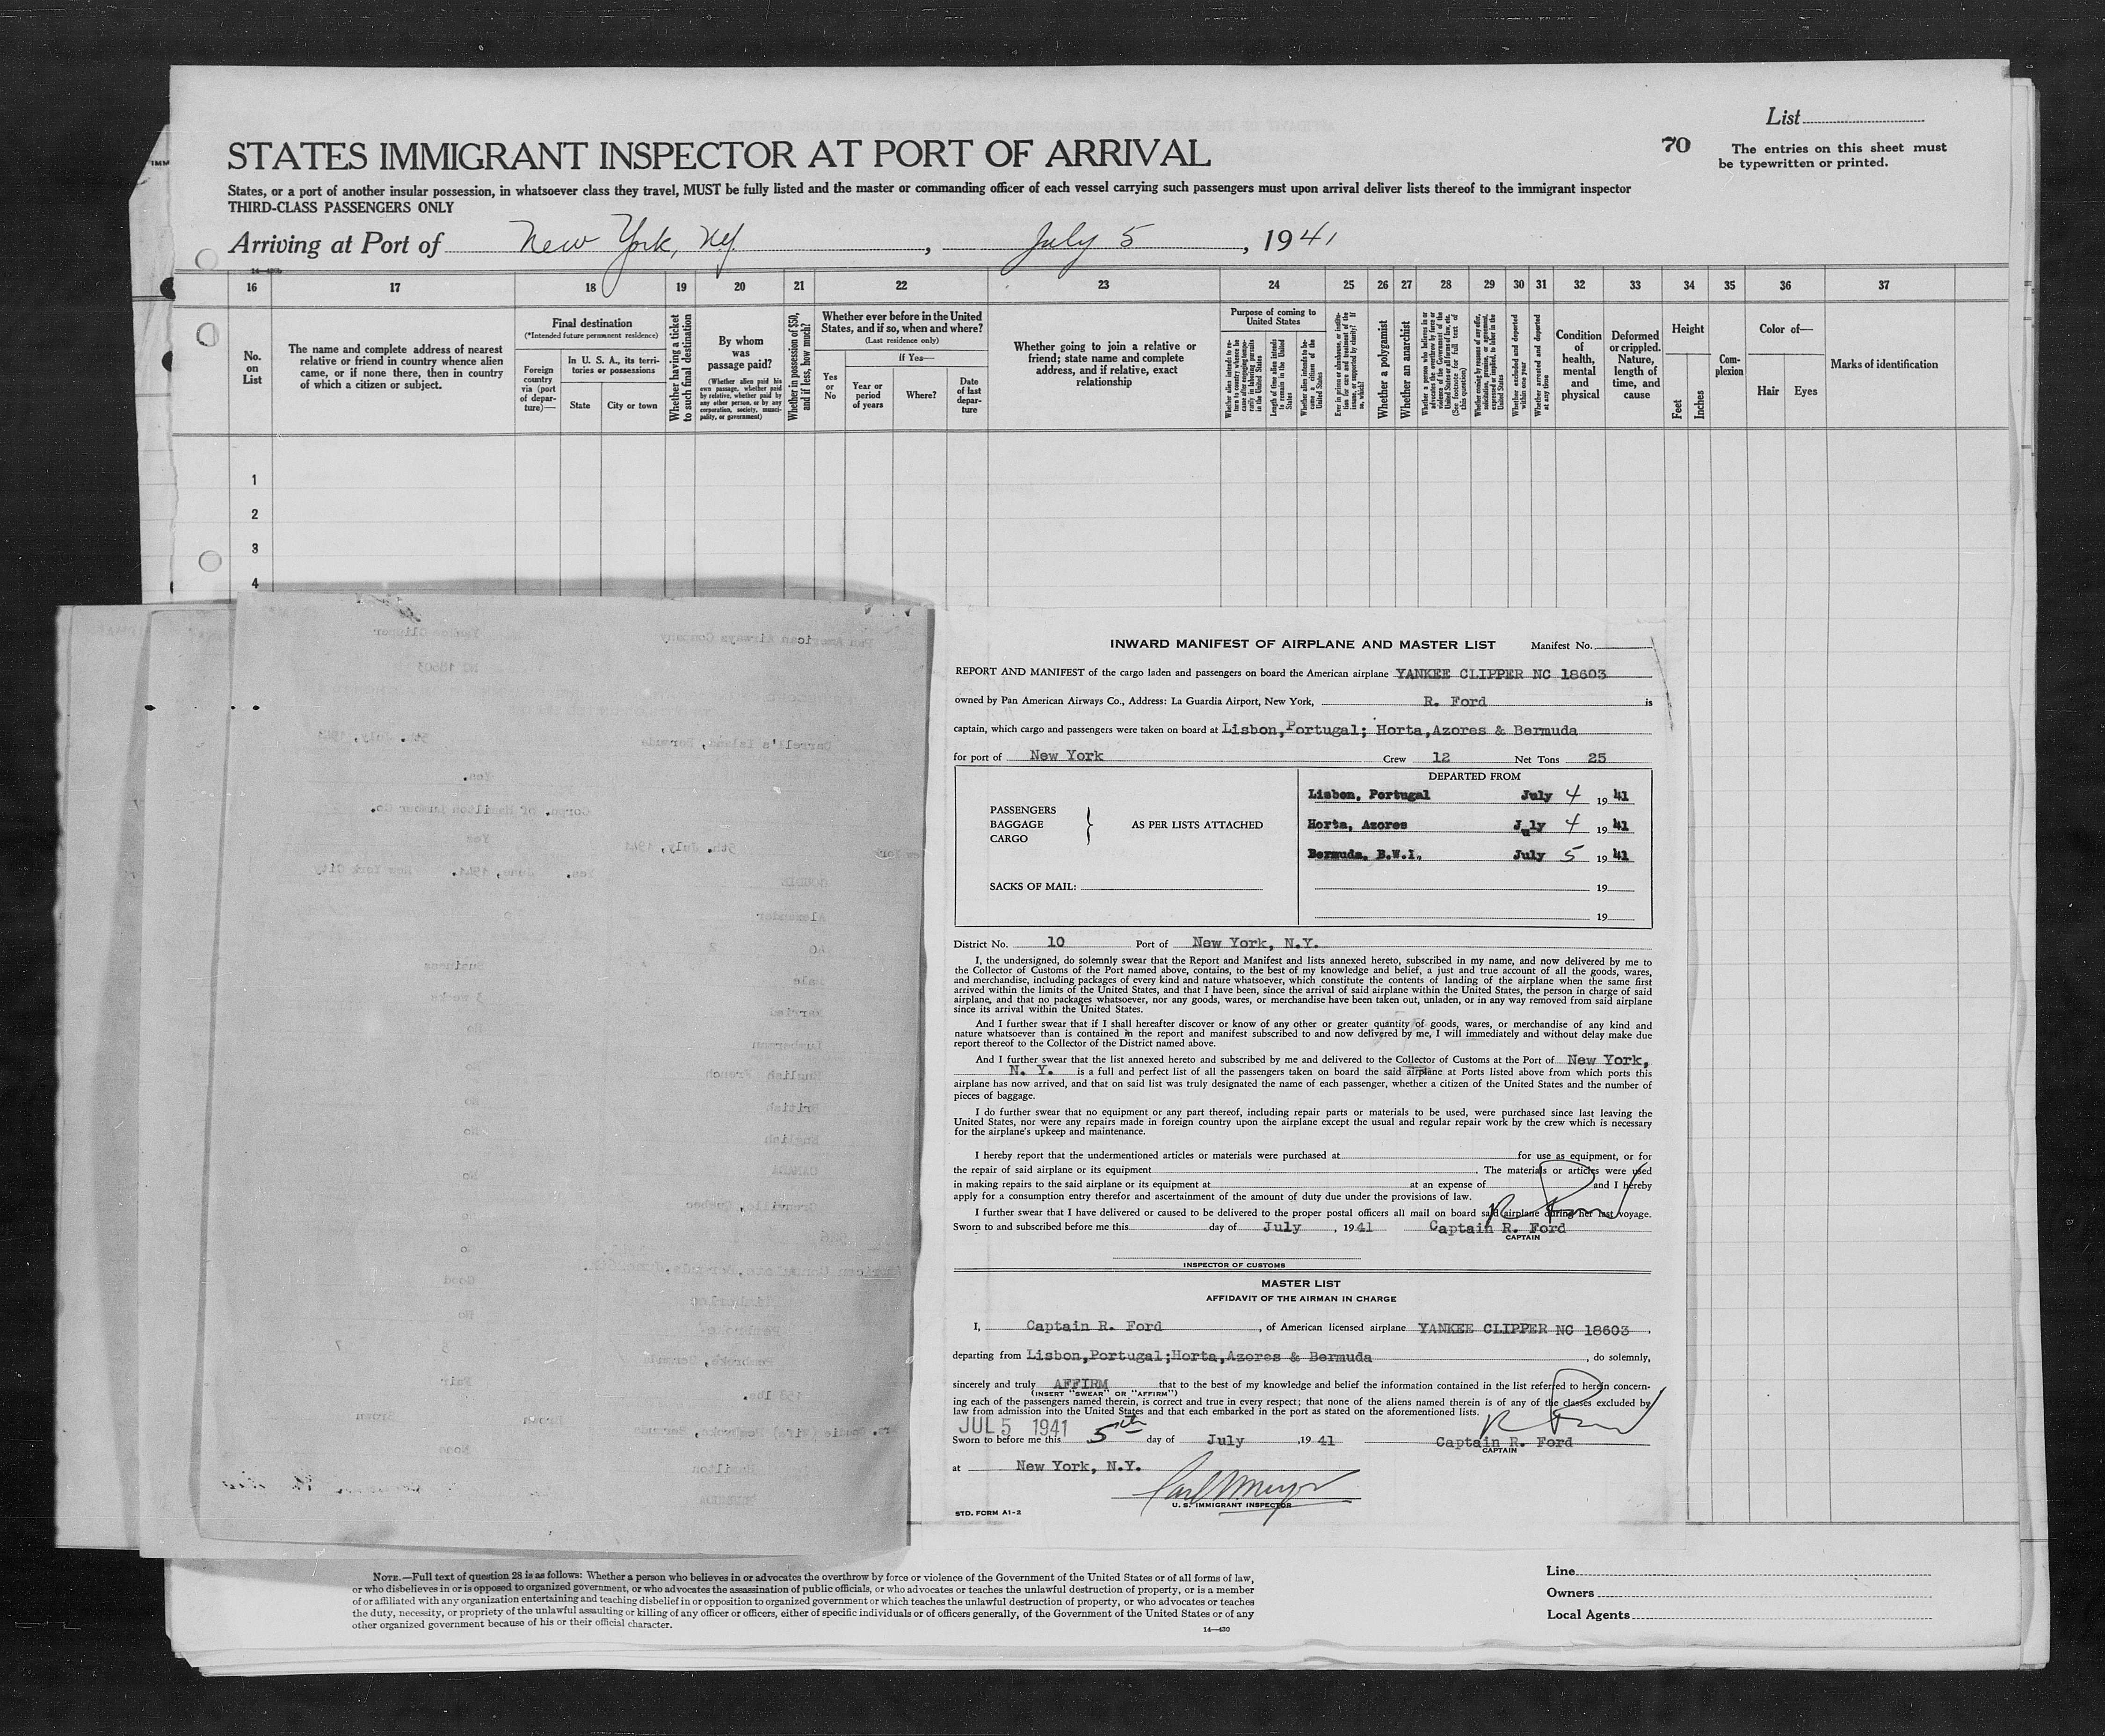 List
STATES IMMIGRANT INSPECTOR AT PORT OF ARRIVAL
70
The entries on this sheet must
be typewritten or printed.
States, or a port of another insular possession, in whatsoever class they travel, MUST be fully listed and the master or commanding officer of each vessel carrying such passengers must upon arrival deliver lists thereof to the immigrant inspector
THIRD-CLASS PASSENGERS ONLY
Arriving at Port of New York, NY, July 5, 1941
16 17 18 19 20 21 22 23 24 25 26 27 28 29 30 31 32 33 34 35 36 37
No.
on
List
The name and complete address of nearest
relative or friend in country whence alien
came, or if none there, then in country
of which a citizen or subject.
Final destination
(*Intended future permanent residence)
Foreign
country
via (port
of depar-
ture)—
In U. S. A., its terri-
tories or possessions
State
City or town
Whether having a ticket
to such final destination
By whom
was
passage paid?
(Whether alien paid his
own passage, whether paid
by relative, whether paid
by any other person, or by any
corporation, society, munici-
pality, or government)
Whether in possession of $50,
and if less, how much?
Whether ever before in the United
States, and if so, when and where?
(Last residence only)
Yes
or
No
If Yes—
Year or
period
of years
Where?
Date
of last
depar-
ture
Whether going to join a relative or
friend; state name and complete
address, and if relative, exact
relationship
Purpose of coming to
United States
Length of time alien intends
to remain in the United
States
Whether alien intends to be-
come a citizen of the
United States
Whether a polygamist
Whether an anarchist
Whether arrested and deported
at any time
Condition
of
health,
mental
and
physical
Deformed
or crippled.
Nature,
length of
time, and
cause
Height
Feet
Inches
Com-
plexion
Color of—
Hair
Eyes
Marks of identification
1
2
3
4
INWARD MANIFEST OF AIRPLANE AND MASTER LIST Manifest No.
REPORT AND MANIFEST of the cargo laden and passengers on board the American airplane YANKEE CLIPPER NC 18603
owned by Pan American Airways Co., Address: La Guardia Airport, New York, R. Ford is
captain, which cargo and passengers were taken on board at Lisbon,Portugal; Horta,Azores & Bermuda
for port of New York Crew 12 Net Tons 25
DEPARTED FROM
PASSENGERS
BAGGAGE
CARGO
AS PER LISTS ATTACHED
Lisbon, Portugal July 4 1941
Horta, Azores July 4 1941
Bermuda, B.W.I. July 5 1941
SACKS OF MAIL: 19
19
District No. 10 Port of New York, N.Y.
I, the undersigned, do solemnly swear that the Report and Manifest and lists annexed hereto, subscribed in my name, and now delivered by me to
the Collector of Customs of the Port named above, contains, to the best of my knowledge and belief, a just and true account of all the goods, wares,
and merchandise, including packages of every kind and nature whatsoever, which constitute the contents of landing of the airplane when the same first
arrived within the limits of the United States, and that I have been, since the arrival of said airplane within the United States, the person in charge of said
airplane, and that no packages whatsoever, nor any goods, wares, or merchandise have been taken out, unladen, or in any way removed from said airplane
since its arrival within the United States.
And I further swear that if I shall hereafter discover or know of any other or greater quantity of goods, wares, or merchandise of any kind and
nature whatsoever than is contained in the report and manifest subscribed to and now delivered by me, I will immediately and without delay make due
report thereof to the Collector of the District named above.
And I further swear that the list annexed hereto and subscribed by me and delivered to the Collector of Customs at the Port of New York,
N. Y. is a full and perfect list of all the passengers taken on board the said airplane at Ports listed above from which ports this
airplane has now arrived, and that on said list was truly designated the name of each passenger, whether a citizen of the United States and the number of
pieces of baggage.
I do further swear that no equipment or any part thereof, including repair parts or materials to be used, were purchased since last leaving the
United States, nor were any repairs made in foreign country upon the airplane except the usual and regular repair work by the crew which is necessary
for the airplane's upkeep and maintenance.
I hereby report that the undermentioned articles or materials were purchased at for use as equipment, or for
the repair of said airplane or its equipment . The materials or articles were used
in making repairs to the said airplane or its equipment at at an expense of and I hereby
apply for a consumption entry therefor and ascertainment of the amount of duty due under the provisions of law.
I further swear that I have delivered or caused to be delivered to the proper postal officers all mail on board said airplane during her last voyage.
Sworn to and subscribed before me this day of July , 1941 Captain R. Ford
CAPTAIN
INSPECTOR OF CUSTOMS
MASTER LIST
AFFIDAVIT OF THE AIRMAN IN CHARGE
I, Captain R. Ford , of American licensed airplane YANKEE CLIPPER NC 18603 ,
departing from Lisbon,Portugal;Horta,Azores & Bermuda , do solemnly,
sincerely and truly AFFIRM that to the best of my knowledge and belief the information contained in the list referred to herein concern-
(INSERT "SWEAR" OR "AFFIRM")
ing each of the passengers named therein, is correct and true in every respect; that none of the aliens named therein is of any of the classes excluded by
law from admission into the United States and that each embarked in the port as stated on the aforementioned lists.
JUL 5 1941
R Ford
Sworn to before me this 5th day of July ,1941 Captain R. Ford
CAPTAIN
at New York, N.Y.
U. S. IMMIGRANT INSPECTOR
STD. FORM A1-2
NOTE.—Full text of question 28 is as follows: Whether a person who believes in or advocates the overthrow by force or violence of the Government of the United States or of all forms of law,
or who disbelieves in or is opposed to organized government, or who advocates the assassination of public officials, or who advocates or teaches the unlawful destruction of property, or is a member
of or affiliated with any organization entertaining and teaching disbelief in or opposition to organized government or which teaches the unlawful destruction of property, or who advocates or teaches
the duty, necessity, or propriety of the unlawful assaulting or killing of any officer or officers, either of specific individuals or of officers generally, of the Government of the United States or of any
other organized government because of his or their official character.
14—430
Line
Owners
Local Agents